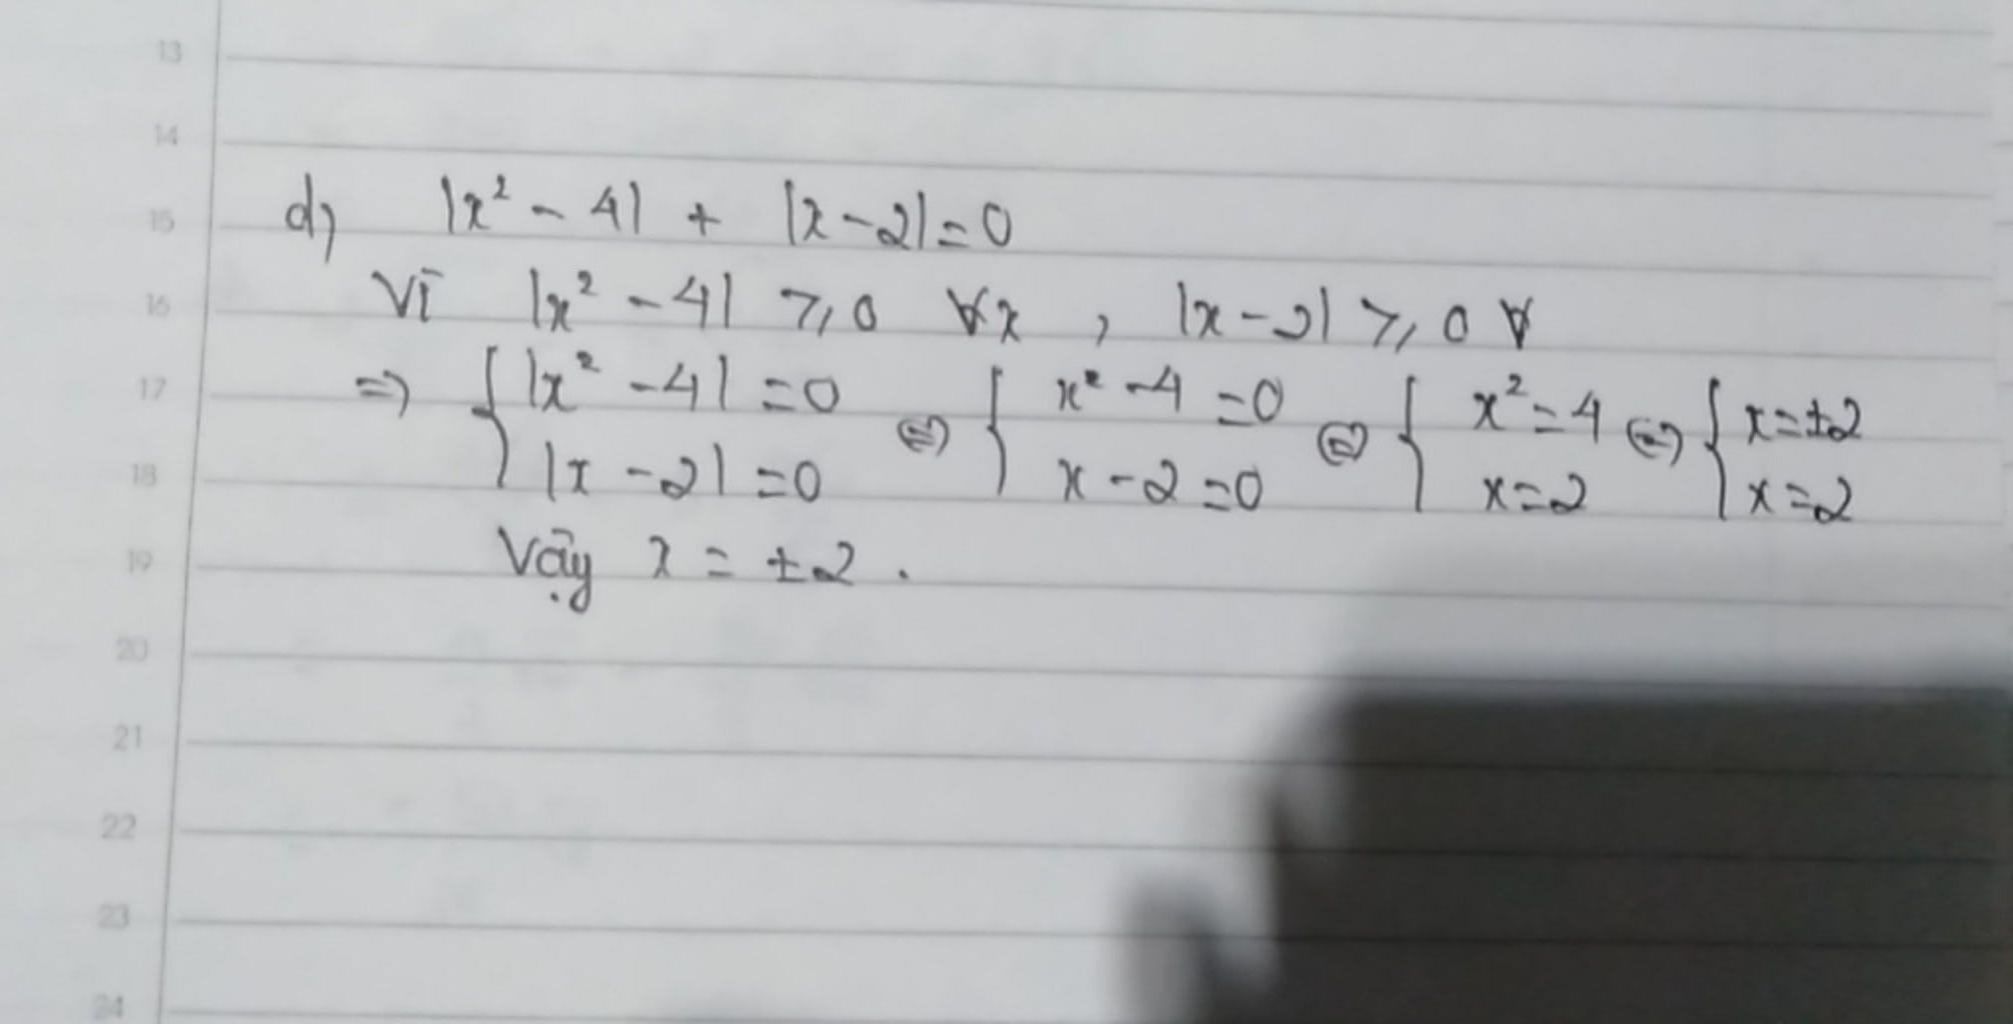 13
14
15 d) |x² - 4| + |x - 2| = 0
16 Vì |x² - 4| ⩾ 0 ∀x , |x - 2| ⩾ 0 ∀
17 ⇒ { |x² - 4| = 0 ⇔ { x² - 4 = 0 ⇔ { x² = 4 ⇔ { x = ±2
18 |x - 2| = 0 x - 2 = 0 x = 2 x = 2
19 Vậy x = ±2 .
20
21
22
23
24